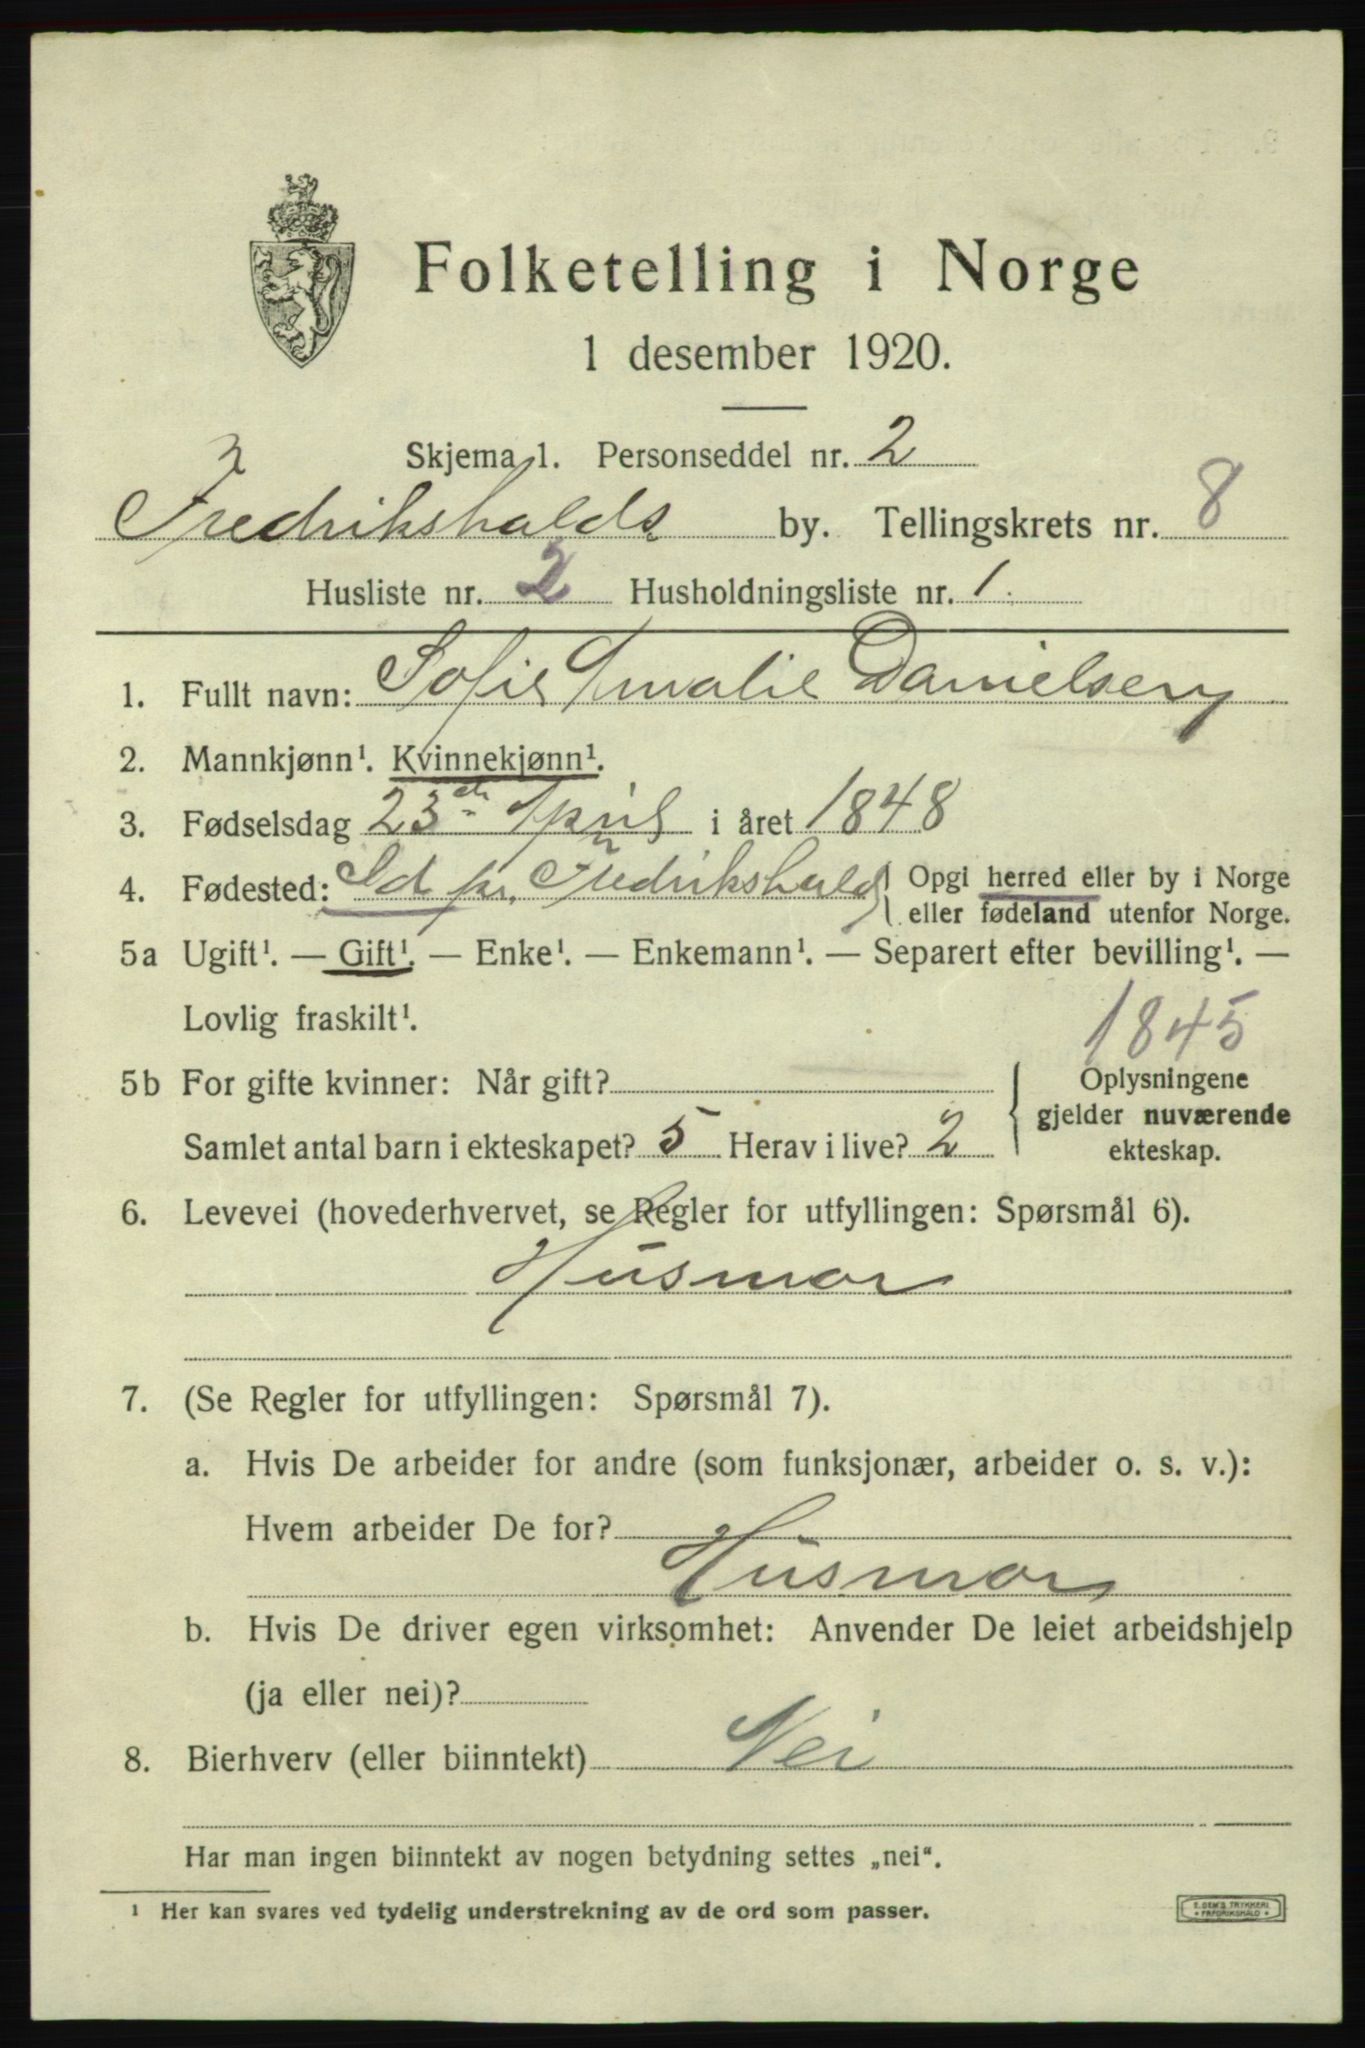 Folketelling i Norge
1 desember 1920.
Skjema 1. Personseddel nr. 2
Fredrikshalds by. Tellingskrets nr. 8
Husliste nr. 2 Husholdningsliste nr. 1.
1. Fullt navn: Sofie Amalie Danielsen
2. Mannkjønn¹. Kvinnekjønn¹.
3. Fødselsdag 23de April i året 1848
4. Fødested: Id pr. Fredrikshald Opgi herred eller by i Norge
eller fødeland utenfor Norge.
5a Ugift¹. — Gift¹. — Enke¹. — Enkemann¹. — Separert efter bevilling¹. —
Lovlig fraskilt¹.
1845
5b For gifte kvinner: Når gift? Oplysningene
gjelder nuværende
Samlet antal barn i ekteskapet? 5 Herav i live? 2 ekteskap.
6. Levevei (hovederhvervet, se Regler for utfyllingen: Spørsmål 6).
Husmor
7. (Se Regler for utfyllingen: Spørsmål 7).
a. Hvis De arbeider for andre (som funksjonær, arbeider o. s. v.):
Hvem arbeider De for?
Husmor
b. Hvis De driver egen virksomhet: Anvender De leiet arbeidshjelp
(ja eller nei)?
8. Bierhverv (eller biinntekt) Nei
Har man ingen biinntekt av nogen betydning settes „nei“.
¹ Her kan svares ved tydelig understrekning av de ord som passer.
E. SEM'S TRYKKERI
FREDRIKSHALD